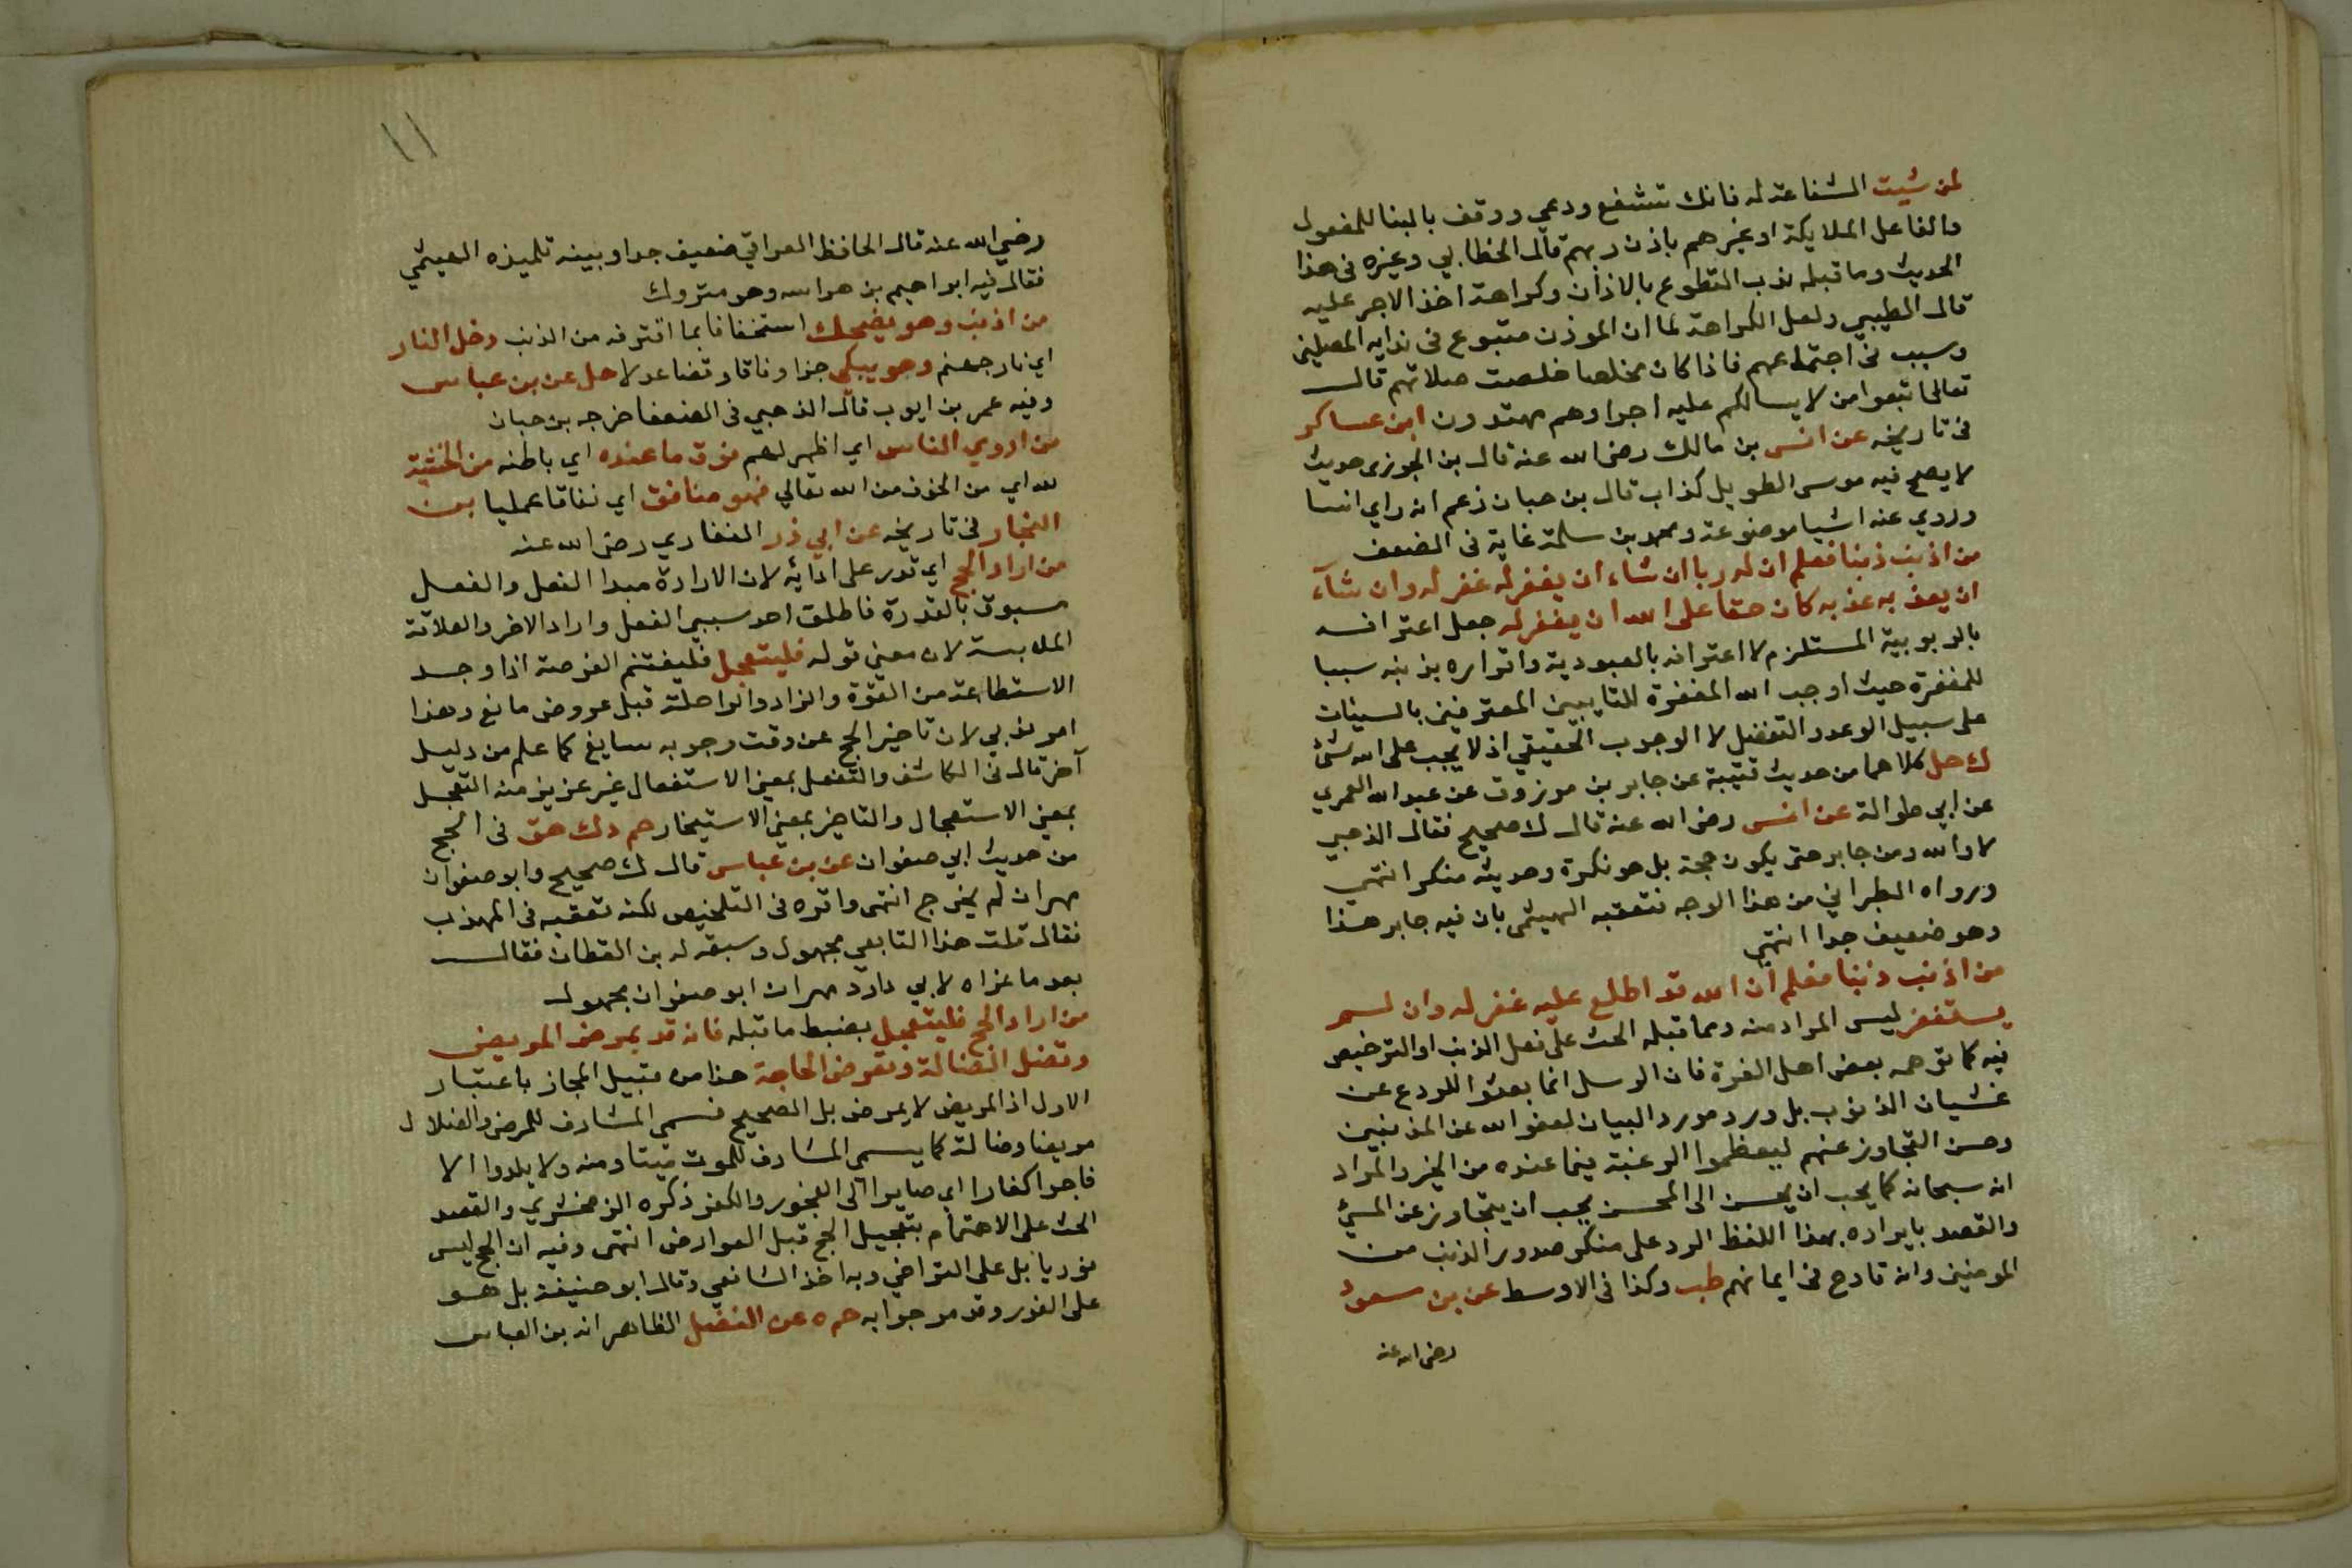 لمن شيت الشفاعة له فانك تشفع ودعي ووقف بالبنا للمفعول
والفاعل الملايكة او غيرهم باذن ربهم قال الخطابي وغيره في هذا
الحديث وما قبله ندب التطوع بالاذان وكراهة اخذ الاجر عليه
قال الطيبي ولعل الكراهة لما ان الموذن متبوع في ندايه المصلين
وسبب في اجتماعهم فاذا كان مخلصا خلصت صلاتهم قال
تعالى اتبعوا من لا يسالكم عليه اجرا وهم مهتدون ابن عساكر
في تاريخه عن انس بن مالك رضى الله عنه قال بن الجوزى حديث
لا يصح فيه موسى الطويل كذاب قال بن حبان زعم انه راي انسا
وروي عنه اشيا موضوعة ومحمد بن سلمة غاية في الضعف
من اذنب ذنبا فعلم ان له ربا ان شاء ان يغفر له غفر له وان شآء
ان يعذبه عذبه كان حقا على الله ان يغفر له جعل اعترافه
بالربوبية المستلزم لاعترافه بالعبودية واقراره بذنبه سببا
للمغفرة حيث اوجب الله المغفرة للتايبين المعترفين بالسيئات
على سبيل الوعد والتفضل لا الوجوب الحقيقي اذ لا يجب على الله شئ
ك حل كلاهما من حديث قتيبة عن جابر بن مرزوق عن عبد الله العمري
عن ابي طوالة عن انس رضى الله عنه قال ك صحيح فقال الذهبي
لا والله ومن جابر حتى يكون حجة بل هو نكرة وحديثه منكر انتهى
ورواه الطبراني من هذا الوجه فتعقبه الهيثمى بان فيه جابر هذا
وهو ضعيف جدا انتهى
من اذنب ذنبا فعلم ان الله قد اطلع عليه غفر له وان لم
يستغفر ليس المراد منه ومما قبله الحث على فعل الذنب او الترخيص
فيه كما توهمه بعض اهل الغرة فان الرسل انما بعثوا للردع عن
غشيان الذنوب بل ورد مورد البيان لعفو الله عن المذنبين
وحسن التجاوز عنهم ليعظموا الرغبة فيما عنده من الخير والمراد
انه سبحانه كما يحب ان يحسن الى المحسن يحب ان يتجاوز عن المسئ
والقصد بايراده بهذا اللفظ الرد على منكر صدور الذنب من
المومنين وانه قادح في ايمانهم طب وكذا في الاوسط عن بن مسعود
رضى الله عنه
١١
رضي الله عنه قال الحافظ العراقي ضعيف جدا وبينه تلميذه الهيثمي
فقال فيه ابراهيم بن هراسه وهو متروك
من اذنب وهو يضحك استخفافا بما اقترفه من الذنب دخل النار
اي نار جهنم وهو يبكي جزا وفاقا وقضا عدلا حل عن بن عباس
وفيه عمر بن ايوب قال الذهبي في الضعفا خرجه بن حبان
من اروي الناس اي اظهر لهم فوق ما عنده اي باطنه من الخشية
لله اي من الخوف من الله تعالي فهو منافق اي نفاقا عمليا بن
النجار في تاريخه عن ابي ذر الغفاري رضى الله عنه
من اراد الحج اي قدر على ادائه لان الارادة مبدا الفعل والفعل
مسبوق بالقدرة فاطلق احد سببي الفعل واراد الاخر والعلاقة
الملابسة لان معني قوله فليتعجل فليغتنم الفرصة اذا وجد
الاستطاعة من القوة والزاد والراحلة قبل عروض مانع وهذا
امر ندبي لان تاخير الحج عن وقت وجوبه سايغ كما علم من دليل
آخر قال في الكاشف والتفعل بمعنى الاستفعال غير عزيز منه التعجل
بمعنى الاستعجال والتاخير بمعنى الاستيخار حم د ك هق في الحج
من حديث ابي صفوان عن بن عباس قال ك صحيح وابو صفوان
مهران لم يخرج انتهى واقره في التلخيص لكنه تعقبه في المهذب
فقال قلت هذا التابعي مجهول وسبقه له بن القطان فقال
بعد ما عزاه لابي داود مهران ابو صفوان مجهول
من اراد الحج فليتعجل بضبط ما قبله فانه قد يمرض المريض
وتضل الضالة وتعرض الحاجة هذا من قبيل المجاز باعتبار
الاول اذ المريض لا يمرض بل الصحيح فسمى المشارف للمرض والضلال
مريضا وضالة كما يسمى المشارف للموت ميتا ومنه ولا يلدوا الا
فاجرا كفارا اي صايرا الى الفجور والكفر ذكره الزمخشري والقصد
الحث على الاهتمام بتعجيل الحج قبل العوارض انتهى وفيه ان الحج ليس
فوريا بل على التراخي وبه اخذ الشافعي وقال ابو حنيفة بل هو
على الفور وقد مر جوابه حم ه عن الفضل الظاهر انه بن العباس